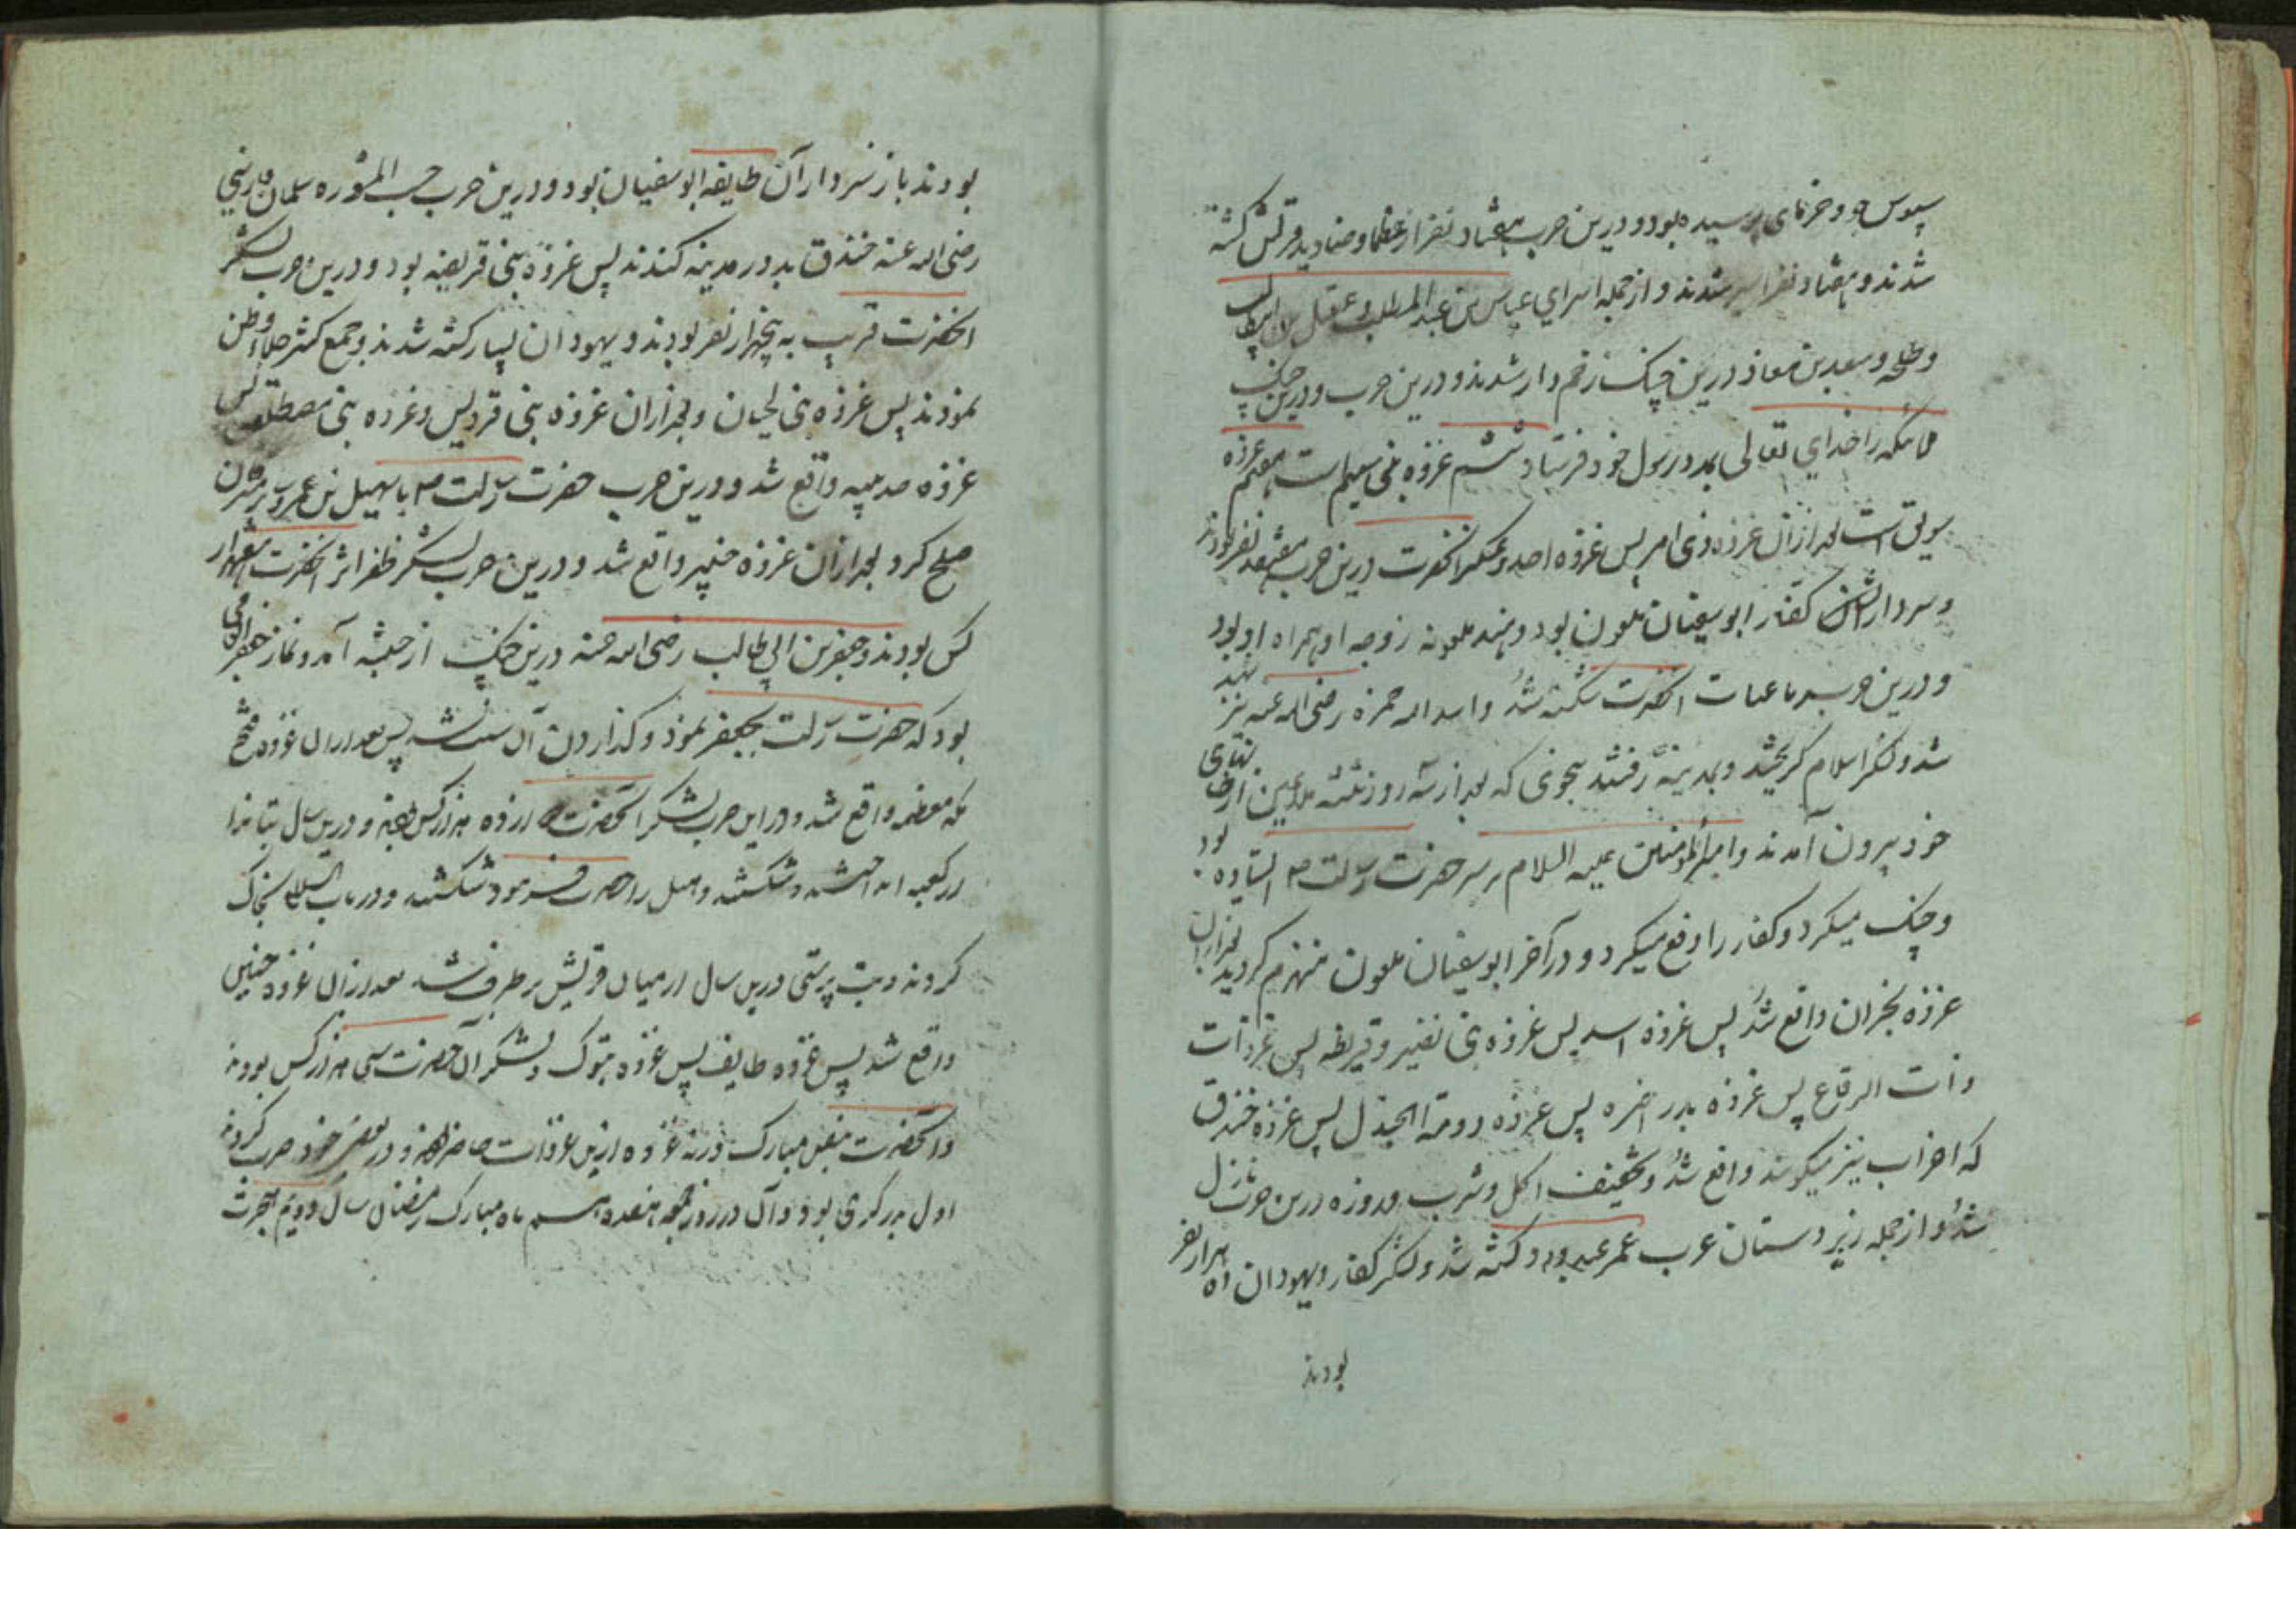 سبوس جو و خرمای پوسیده بود و درین حرب هفتاد نفر از عظما و صنادید قریش کشته
شدند و هفتاد نفر اسیر شدند و از جمله اسرای عباس بن عبد المطلب و عقیل بن ابیطالب
و طلحه و سعد بن معاذ درین جنک زخم دار شدند و درین حرب و درین جنک
ملائکه را خدای تعالی بمدد رسول خود فرستاد ششم غزوه بنی سلیم است هفتم غزوه
سویق است بعد ازان غزوه ذی امر پس غزوه احد و عسکر آنحضرت درین حرب هفتصد نفر بودند
و سردار کفار ابو سفیان ملعون بود و هند ملعونه زوجه او همراه او بود
و درین حرب رباعیات آنحضرت شکسته شد و اسد الله حمزه رضی الله عنه نیز شهید
شد و لشکر اسلام کریختند و بمدینه رفتند بنحوی که بعد از سه روز
خود بیرون آمدند و امیر المؤمنین علیه السلام بر سر حضرت رسالت ص ایستاده بود
و جنک میکرد و کفار را دفع میکرد و در آخر ابو سفیان ملعون منهزم کردید بعد ازان
غزوه بحران واقع شد پس غزوه اسد پس غزوه بنی نضیر و قریظه پس غزوات
ذات الرقاع پس غزوه بدر اخره پس غزوه دومة الجندل پس غزوه خندق
که احزاب نیز میکویند واقع شد و تخفیف اکل و شرب و روزه درین حرب نازل
شد و از جمله زبردستان عرب عمر عبدود کشته شد و لشکر کفار و یهودان ده هزار نفر
بودند
بودند باز سردار آن طایفه ابو سفیان بود و درین حرب حسب المشوره سلمان فارسی
رضی الله عنه خندق بدور مدینه کندند پس غزوه بنی قریضه بود و درین حرب لشکر
آنحضرت قریب به پنجهزار نفر بودند و یهودان بسیار کشته شدند و جمع کثیر جلاء وطن
نمودند پس غزوه بنی لحیان و بعد ازان غزوه بنی قردیس و غزوه بنی مصطلق پس
غزوه حدیبیه واقع شد و درین حرب حضرت رسالت ص با سهیل بن عمرو
صلح کرد و بعد ازان غزوه خیبر واقع شد و درین حرب لشکر ظفر اثر آنحضرت
کس بودند و جعفر بن ابی طالب رضی الله عنه درین جنک از حبشه آمد و نماز جعفر
بود که حضرت رسالت بجعفر نمود و کذاردن آن سنت شد پس بعد ازان غزوه فتح
مکه معظمه واقع شد و در این حرب لشکر آنحضرت ص ده هزار کس بودند و درین سال بتانرا
از کعبه انداختند و شکستند و هبل را حضرت فرمود شکستند و در باب السلام بخاک
کردند و بت پرستی درین سال از میان قریش بر طرف شد بعد ازان غزوه حنین
واقع شد پس غزوه طایف پس غزوه تبوک و لشکر آن حضرت سی هزار کس بودند
و آنحضرت بنفس مبارک در نه غزوه ازین غزوات حاضر بودند و در بعضی خود حرب کردند
اول بدر کبری بود و آن در روز جمعه هفدهم ماه مبارک رمضان سال دویم هجرت